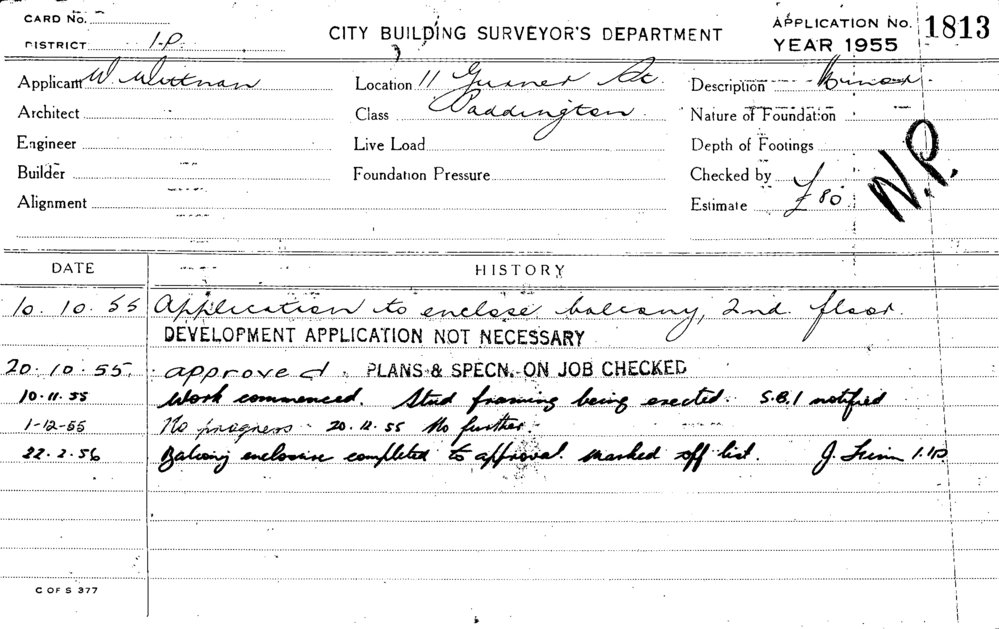 CARD No.
DISTRICT 1-P
CITY BUILDING SURVEYOR'S DEPARTMENT
APPLICATION No. 1813
YEAR 1955
Applicant W. Wittnan
Location 11 Gurner St
Description Minor
Architect
Class Paddington
Nature of Foundation
Engineer
Live Load
Depth of Footings
Builder
Foundation Pressure
Checked by
Alignment
Estimate £80
N.P.
DATE HISTORY
10.10.55 Application to enclose balcony, 2nd. floor.
DEVELOPMENT APPLICATION NOT NECESSARY
20.10.55. approved. PLANS & SPECN. ON JOB CHECKED
10.11.55 Work commenced. Stud framing being erected. S.B.I notified
1-12-55 No progress. 20.12.55 No further.
22.2.56 Balcony enclosure completed to approval. Marked off list. J.
C OF S 377